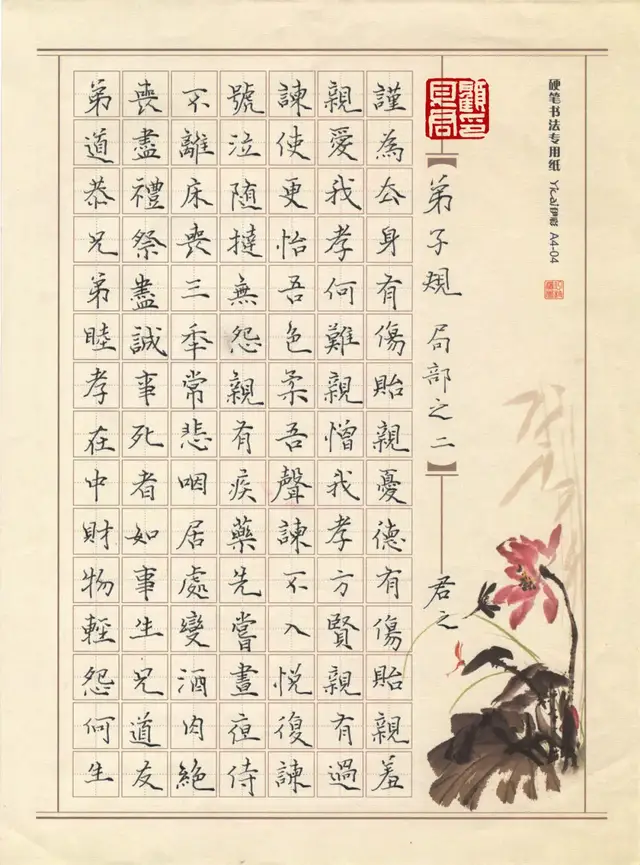 硬笔书法专用纸 Yicai伊彩 A4-04
【弟子規 局部之二】 君之
謹為公身有傷貽親憂德有傷貽親羞
親愛我孝何難親憎我孝方賢親有過
諫使更怡吾色柔吾聲諫不入悅復諫
號泣随撻無怨親有疾藥先嘗晝夜侍
不離床喪三秊常悲咽居處變酒肉絕
喪盡禮祭盡誠事死者如事生兄道友
弟道恭兄弟睦孝在中財物輕怨何生